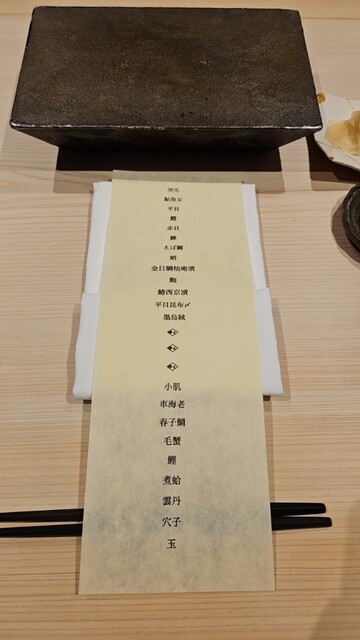 突先
鮎魚女
平貝
鱧
赤貝
鯵
えぼ鯛
蛸
金目鯛柚庵漬
鮑
鰆西京漬
平目昆布〆
墨烏賊
小肌
車海老
春子鯛
毛蟹
鰹
煮蛤
雲丹
穴子
玉